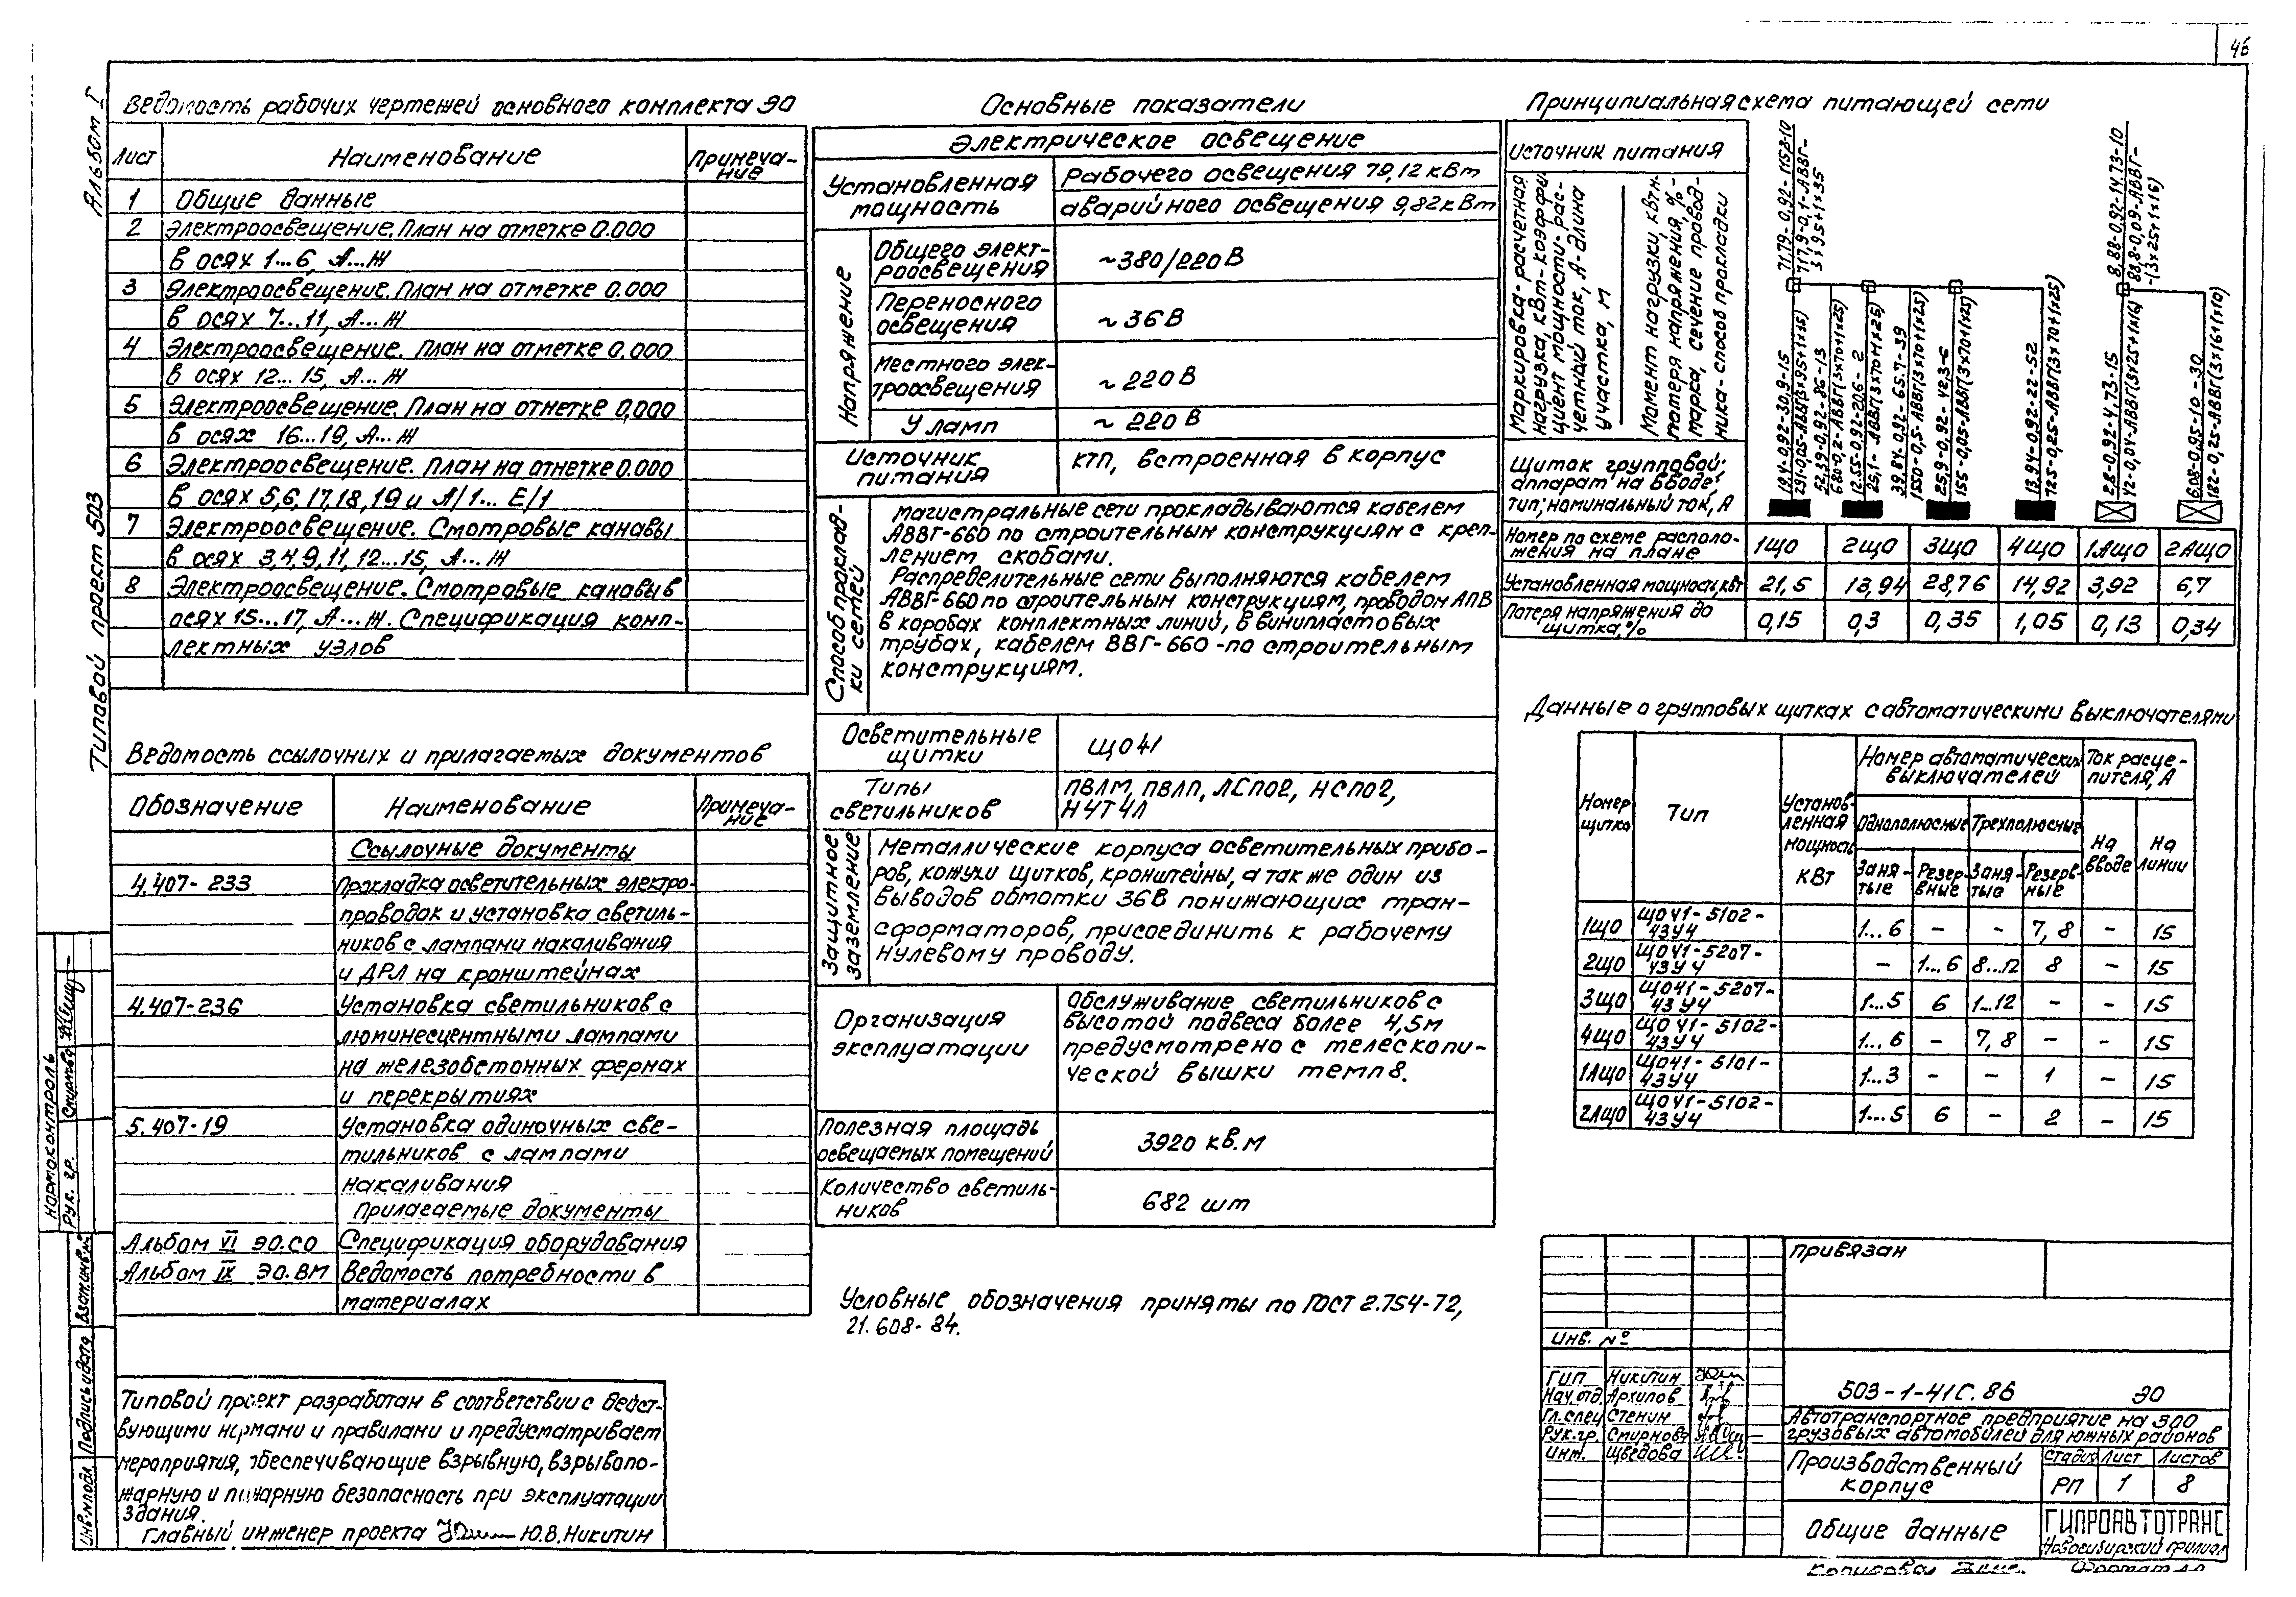 46
Альбом I
Типовой проект 503
Ведомость рабочих чертежей основного комплекта ЭО
Лист
Наименование
Примеча-
ние
1 Общие данные
2 Электроосвещение. План на отметке 0.000
в осях 1...6, А...Ж
3 Электроосвещение. План на отметке 0.000
в осях 7...11, А...Ж
4 Электроосвещение. План на отметке 0.000
в осях 12...15, А...Ж
5 Электроосвещение. План на отметке 0,000
в осях 16...19, А...Ж
6 Электроосвещение. План на отметке 0.000
в осях 5,6,17,18,19 и А/1... Е/1
7 Электроосвещение. Смотровые канавы
в осях 3,4,9,11,12...15, А...Ж
8 Электроосвещение. Смотровые канавы в
осях 15...17, А...Ж. Спецификация комп-
лектных узлов
Ведомость ссылочных и прилагаемых документов
Обозначение
Наименование
Примеча-
ние
Ссылочные документы
4.407-233 Прокладка осветительных электро-
проводок и установка светиль-
ников с лампами накаливания
и ДРЛ на кронштейнах
4.407-236 Установка светильников с
люминесцентными лампами
на железобетонных фермах
и перекрытиях
5.407-19 Установка одиночных све-
тильников с лампами
накаливания
Прилагаемые документы
Альбом VI ЭО.СО Спецификация оборудования
Альбом IX ЭО.ВМ Ведомость потребности в
материалах
Типовой проект разработан в соответствии с дейст-
вующими нормами и правилами и предусматривает
мероприятия, обеспечивающие взрывную, взрывопо-
жарную и пожарную безопасность при эксплуатации
здания.
Главный инженер проекта Ю.В. Никитин
Нормоконтроль
Рук. гр. Смирнова
Взам.инв.№
Подпись и дата
Инв.№подл.
Основные показатели
Электрическое освещение
Установленная
мощность
Рабочего освещения 79,12 кВт
аварийного освещения 9,82 кВт
Напряжение
Общего элект-
роосвещения
~380/220 В
Переносного
освещения
~36 В
Местного элек-
троосвещения
~220 В
У ламп
~220 В
Источник
питания
КТП, встроенная в корпус
Способ проклад-
ки сетей
Магистральные сети прокладываются кабелем
АВВГ-660 по строительным конструкциям с креп-
лением скобами.
Распределительные сети выполняются кабелем
АВВГ-660 по строительным конструкциям, проводом АПВ
в коробах комплектных линий, в винипластовых
трубах, кабелем ВВГ-660 - по строительным
конструкциям.
Осветительные
щитки
ЩО41
Типы
светильников
ПВЛМ, ПВЛП, ЛСП02, НСП02,
Н4Т4Л
Защитное
заземление
Металлические корпуса осветительных прибо-
ров, кожухи щитков, кронштейны, а так же один из
выводов обмотки 36В понижающих тран-
сформаторов, присоединить к рабочему
нулевому проводу.
Организация
эксплуатации
Обслуживание светильников с
высотой подвеса более 4,5м
предусмотрено с телескопи-
ческой вышки темп 8.
Полезная площадь
освещаемых помещений
3920 кв.м
Количество светиль-
ников
682 шт
Условные обозначения приняты по ГОСТ 2.754-72,
21.608-84.
Принципиальная схема питающей сети
Источник питания
Маркировка-расчетная
нагрузка, кВт-коэффи-
циент мощности-рас-
четный ток, А-длина
участка, м
Момент нагрузки, кВтм-
потеря напряжения, %-
марка, сечение провод-
ника-способ прокладки
71,79-0,92-115,8-10
717,9-0,1-АВВГ-
3×95+1×35
8,88-0,92-14,73-10
88,8-0,09-АВВГ-
-(3×25+1×16)
19,4-0,92-30,9-15
291-0,05-АВВГ(3×95+1×35)
52,39-0,92-86-13
680-0,2-АВВГ(3×70+1×25)
12.55-0.92-20.6-2
25,1-АВВГ(3×70+1×25)
39,84-0,92-65,7-39
1550-0,5-АВВГ(3×70+1×25)
25,9-0,92-42,3-6
155-0,05-АВВГ(3×70+1×25)
13,94-0,92-22-52
725-0,25-АВВГ(3×70+1×25)
2,8-0,92-4,73-15
42-0,04-АВВГ(3×25+1×16)
6,08-0,95-10-30
182-0,25-АВВГ(3×16+1×10)
Щиток групповой;
аппарат на вводе;
тип; номинальный ток, А
Номер по схеме располо-
жения на плане
1ЩО 2ЩО 3ЩО 4ЩО 1АЩО 2АЩО
Установленная мощность, кВт
21,5 13,94 28,76 14,92 3,92 6,7
Потеря напряжения до
щитка, %
0,15 0,3 0,35 1,05 0,13 0,34
Данные о групповых щитках с автоматическими выключателями
Номер
щитка
Тип
Установ-
ленная
мощность
кВт
Номер автоматических
выключателей
Ток расце-
пителя, А
Однополюсные
Трехполюсные
Заня-
тые
Резер-
вные
Заня-
тые
Резерв-
ные
На
вводе
На
линии
1ЩО ЩО41-5102-43У4 1...6 - - 7, 8 - 15
2ЩО ЩО41-5207-43У4 - 1...6 8...12 8 - 15
3ЩО ЩО41-5207-43У4 1...5 6 1...12 - - 15
4ЩО ЩО41-5102-43У4 1...6 - 7, 8 - - 15
1АЩО ЩО41-5101-43У4 1...3 - - 1 - 15
2АЩО ЩО41-5102-43У4 1...5 6 - 2 - 15
Привязан
Инв. №
ГИП Никитин
Нач.отд. Архипов
Гл.спец Стенин
Рук.гр. Смирнова
Инж. Щведова
503-1-41С.86 ЭО
Автотранспортное предприятие на 300
грузовых автомобилей для южных районов
Производственный
корпус
Стадия Лист Листов
РП 1 8
Общие данные
ГИПРОАВТОТРАНС
Новосибирский филиал
Копировал
Формат